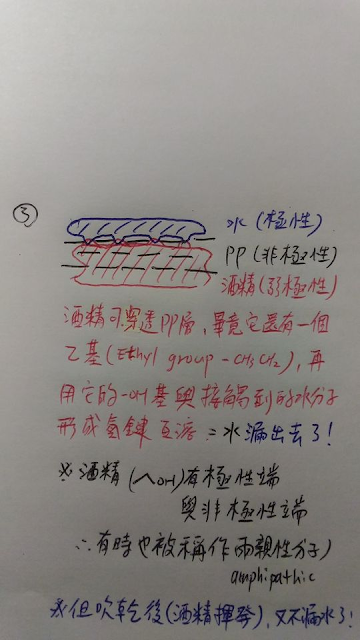 ③
水(極性)
PP(非極性)
酒精(弱極性)
酒精可穿透PP層,畢竟它還有一個
乙基(Ethyl group -CH3CH2),再
用它的-OH基與接觸到的水分子
形成氫鍵互溶 = 水漏出去了!
※酒精(^OH)有極性端
與非極性端
∴有時也被稱作兩親性分子)
amphipathic
※但吹乾後(酒精揮發),又不漏水了!